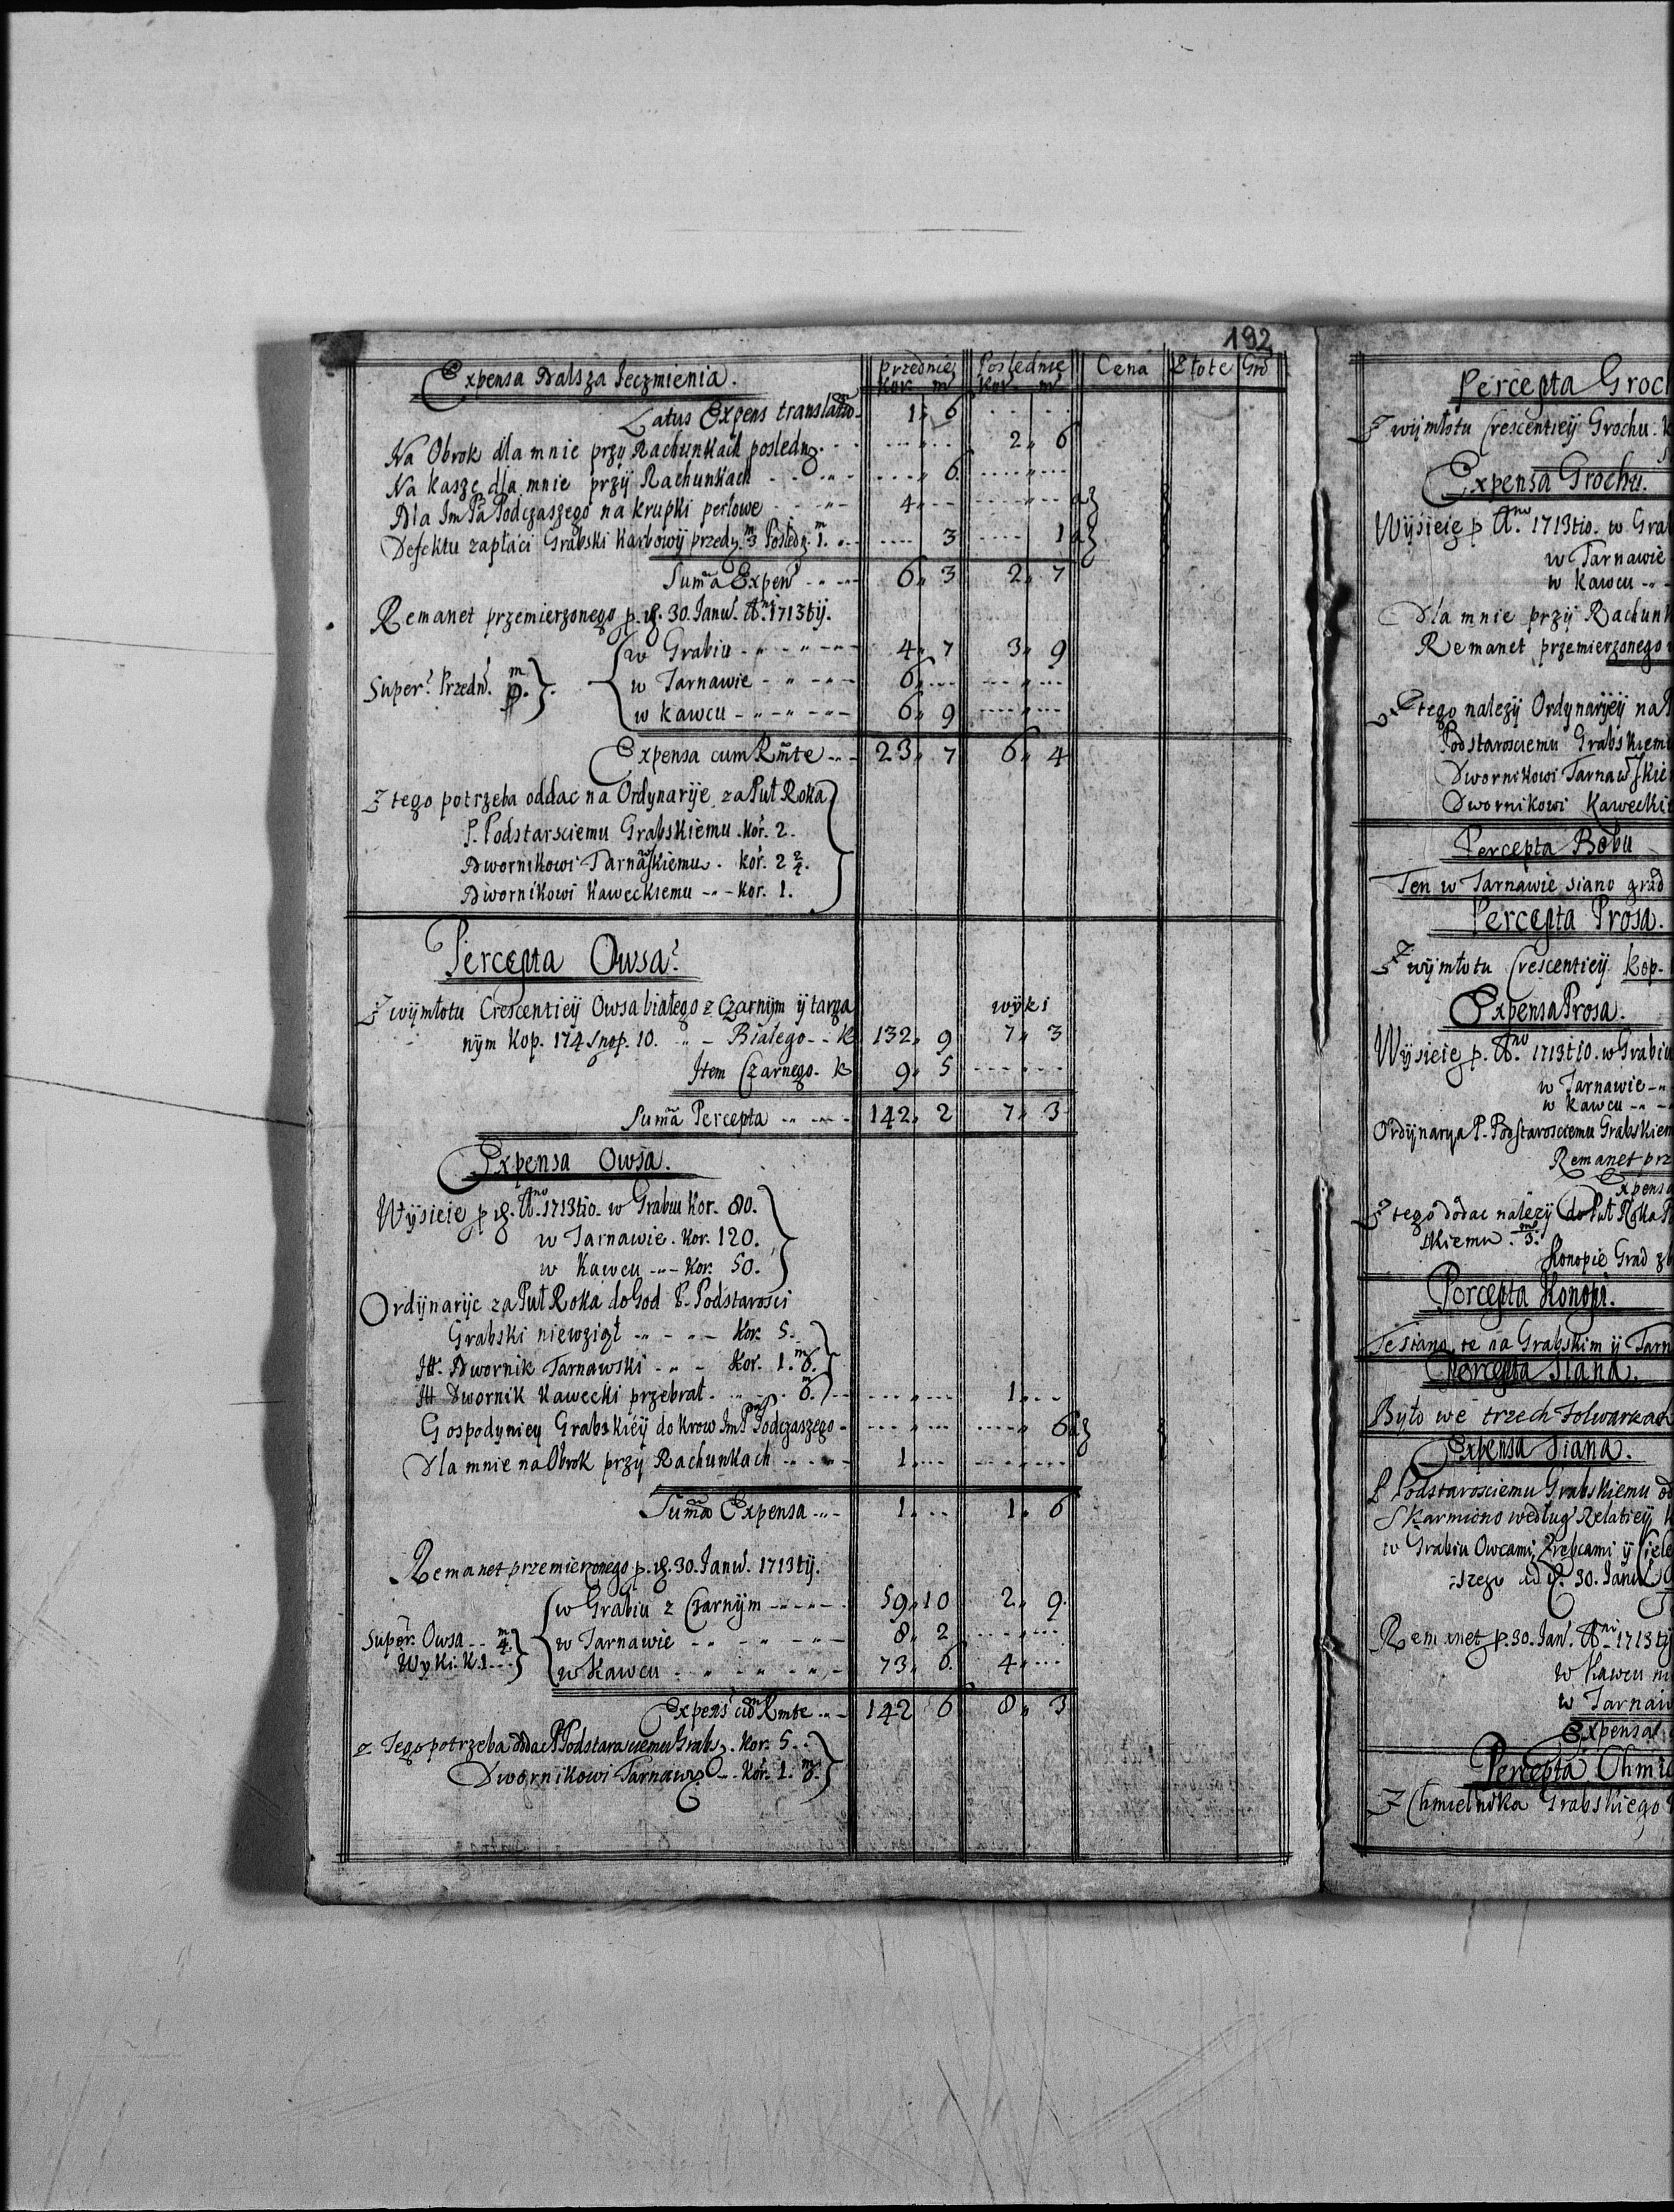 192
Expensa Dalsza Jeczmienia. | Przednie Kor. m | Poslednie Kor. m | Cena | Złote | Gro
Latus Expens translatio 1 „ 6
Na Obrok dla mnie przy Rachunkach posledn. 2 „ 6
Na kaszę dla mnie przÿ Rachunkach „ 6
Dla Im Pa Podczaszego na krupki perłowe 4
Defektu zapłaci Grabski karbowÿ przedn. m 3 Posledn. m 1. 3 1
Suma Expens 6 „ 3 2 „ 7
Remanet przemierzonego p. d. 30. Janu. Ani 1713tij.
w Grabiu 4 „ 7 3 „ 9
Super. Przedn. m 9. w Tarnawie 6
w kawcu 6 „ 9
Expensa cum Rmte 23 „ 7 6 „ 4
Z tego potrzeba oddac na Ordynarije za Puł Roka
P. Podstarsciemu Grabskiemu. kor. 2.
Dwornikowi Tarnawskiemu. kor. 2 2/4.
Dwornikowi Kaweckiemu kor. 1.
Percepta Owsa.
Z wÿmłotu Crescentieÿ Owsa białego z Czarnÿm ÿ targa wÿki
nÿm Kop. 174 Snop. 10. Białego K 132 „ 9 7 „ 3
Item Czarnego. K 9 „ 5
Suma Percepta 142 „ 2 7 „ 3
Expensa Owsa.
Wÿsieie p. d. Ano 1713tio. w Grabiu Kor. 80.
w Tarnawie. Kor. 120.
w Kawcu Kor. 50.
Ordÿnarije za Puł Roka do God P. Podstarosci
Grabski niewziął Kor. 5.
It. Dwornik Tarnawski Kor. 1. m 6.
It Dwornik Kawecki przebrał. m 6. 1
Gospodyniey Grabskieÿ do krow Im P Podczaszego 6
Dla mnie na Obrok przy Rachunkach 1
Suma Expensa 1 1 „ 6
Remanet przemierzonego p. d. 30. Janu. 1713tij.
w Grabiu z Czarnÿm 59 „ 10 2 „ 9
Super. Owsa m 4. w Tarnawie 8 „ 2
Wyki. K. 1 w Kawcu 73 „ 6 4
Expens cum Rmte 142 6 8 „ 3
z Tego potrzeba oddac P Podstarosciemu Grabs. Kor. 5.
Dwornikowi Tarnaws. Kor. 1. m 6.
Percepta Groch
Z wÿmłotu Crescentieÿ Grochu. K
Expensa Grochu.
Wÿsieie p Ano. 1713tio. w Gra
w Tarnawie
w kawcu
Dla mnie przÿ Rachunk
Remanet przemierzonego
Z tego nalezÿ Ordynarÿeÿ na
Podstarosciemu Grabskiem
Dwornikowi Tarnawskie
Dwornikowi Kawecki
Percepta Bobu
Ten w Tarnawie siano grad
Percepta Prosa.
Z wÿmłotu Crescentieÿ Kop.
Expensa Prosa.
Wÿsieie p. Ano. 1713tio. w Grabiu
w Tarnawie
w kawcu
Ordÿnarya P. Podstarosciemu Grabskiem
Remanet prz
Expensa
Z tego dodac nalezÿ do Puł Roka
skiemu. m 3.
Konopie Grad z
Percepta Konopi.
Te siano te na Grabskim ÿ Tarn
Percepta Siana.
Było we trzech Folwarkach
Expensa Siana.
P Podstarosciemu Grabskiemu od
Skarmiono według Relatieÿ
w Grabiu Owcami, Zrebcami ÿ Ciele
szego ad d. 30. Janu
Remanet p. 30. Jan. Ani. 1713tij
w Kawcu
w Tarnaw
Expensa
Percepta Chmie
Z Chmielnika Grabskiego